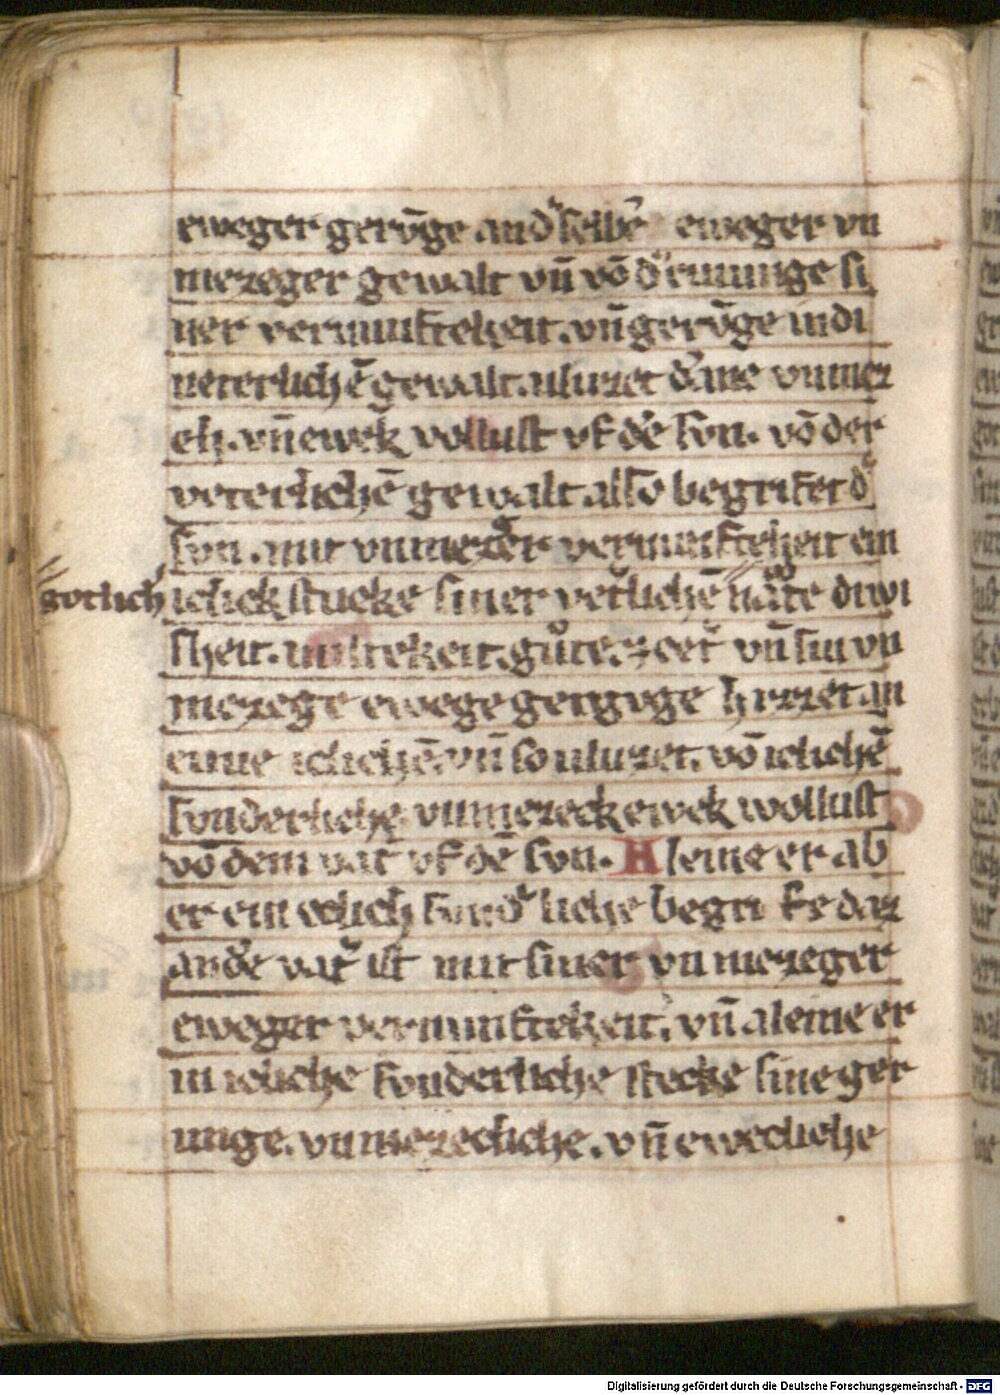 eweger gerv̄ge and᾽ selbē eweger vn
mezeger gewalt vn̄ vō d᾽ einunge si
ner vernunftekeit. vn̄ gerv̄ge in di
veterlichē gewalt. uluzet d᾽ame vnmez
ek. vn̄ ewek vollust vf dē svn. vō der
veterlichē gewalt. also begrifet d᾽
svn. mit vnmezeger vernunftekeit ein
gotlich᾽ ichlick stucke siner vet᾽lichē nat᾽e di wi
sheit. miltekeit. gůte. ⁊ cet᾽ vn̄ sin vn
mezege ewege gervge hizzet an
eime ichlichē. vn̄ so uluzet. vō ichlichē
svnderliche vnmezeck ewek wollust
vō dem vat᾽ vf dē svn. Aleine er ab
er ein eclich svnd᾽liche begrife daz
an dē vat᾽ ist mit siner vnmezeger
eweger vernunftekeit. vn̄ aleine er
in ichliche svnderliche stecke sine ger
unge. vnmezecliche. vn̄ ewecliche
Digitalisierung gefördert durch die Deutsche Forschungsgemeinschaft - DFG